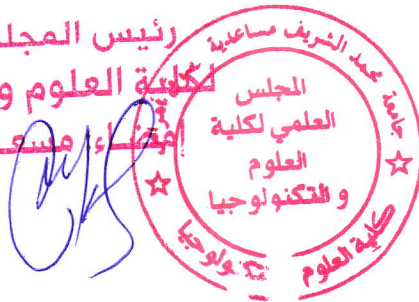 رئيس المجلس
لكلية العلوم و
جامعة محمد الشريف مساعدية
المجلس
العلمي لكلية
العلوم
و التكنولوجيا
كلية العلوم